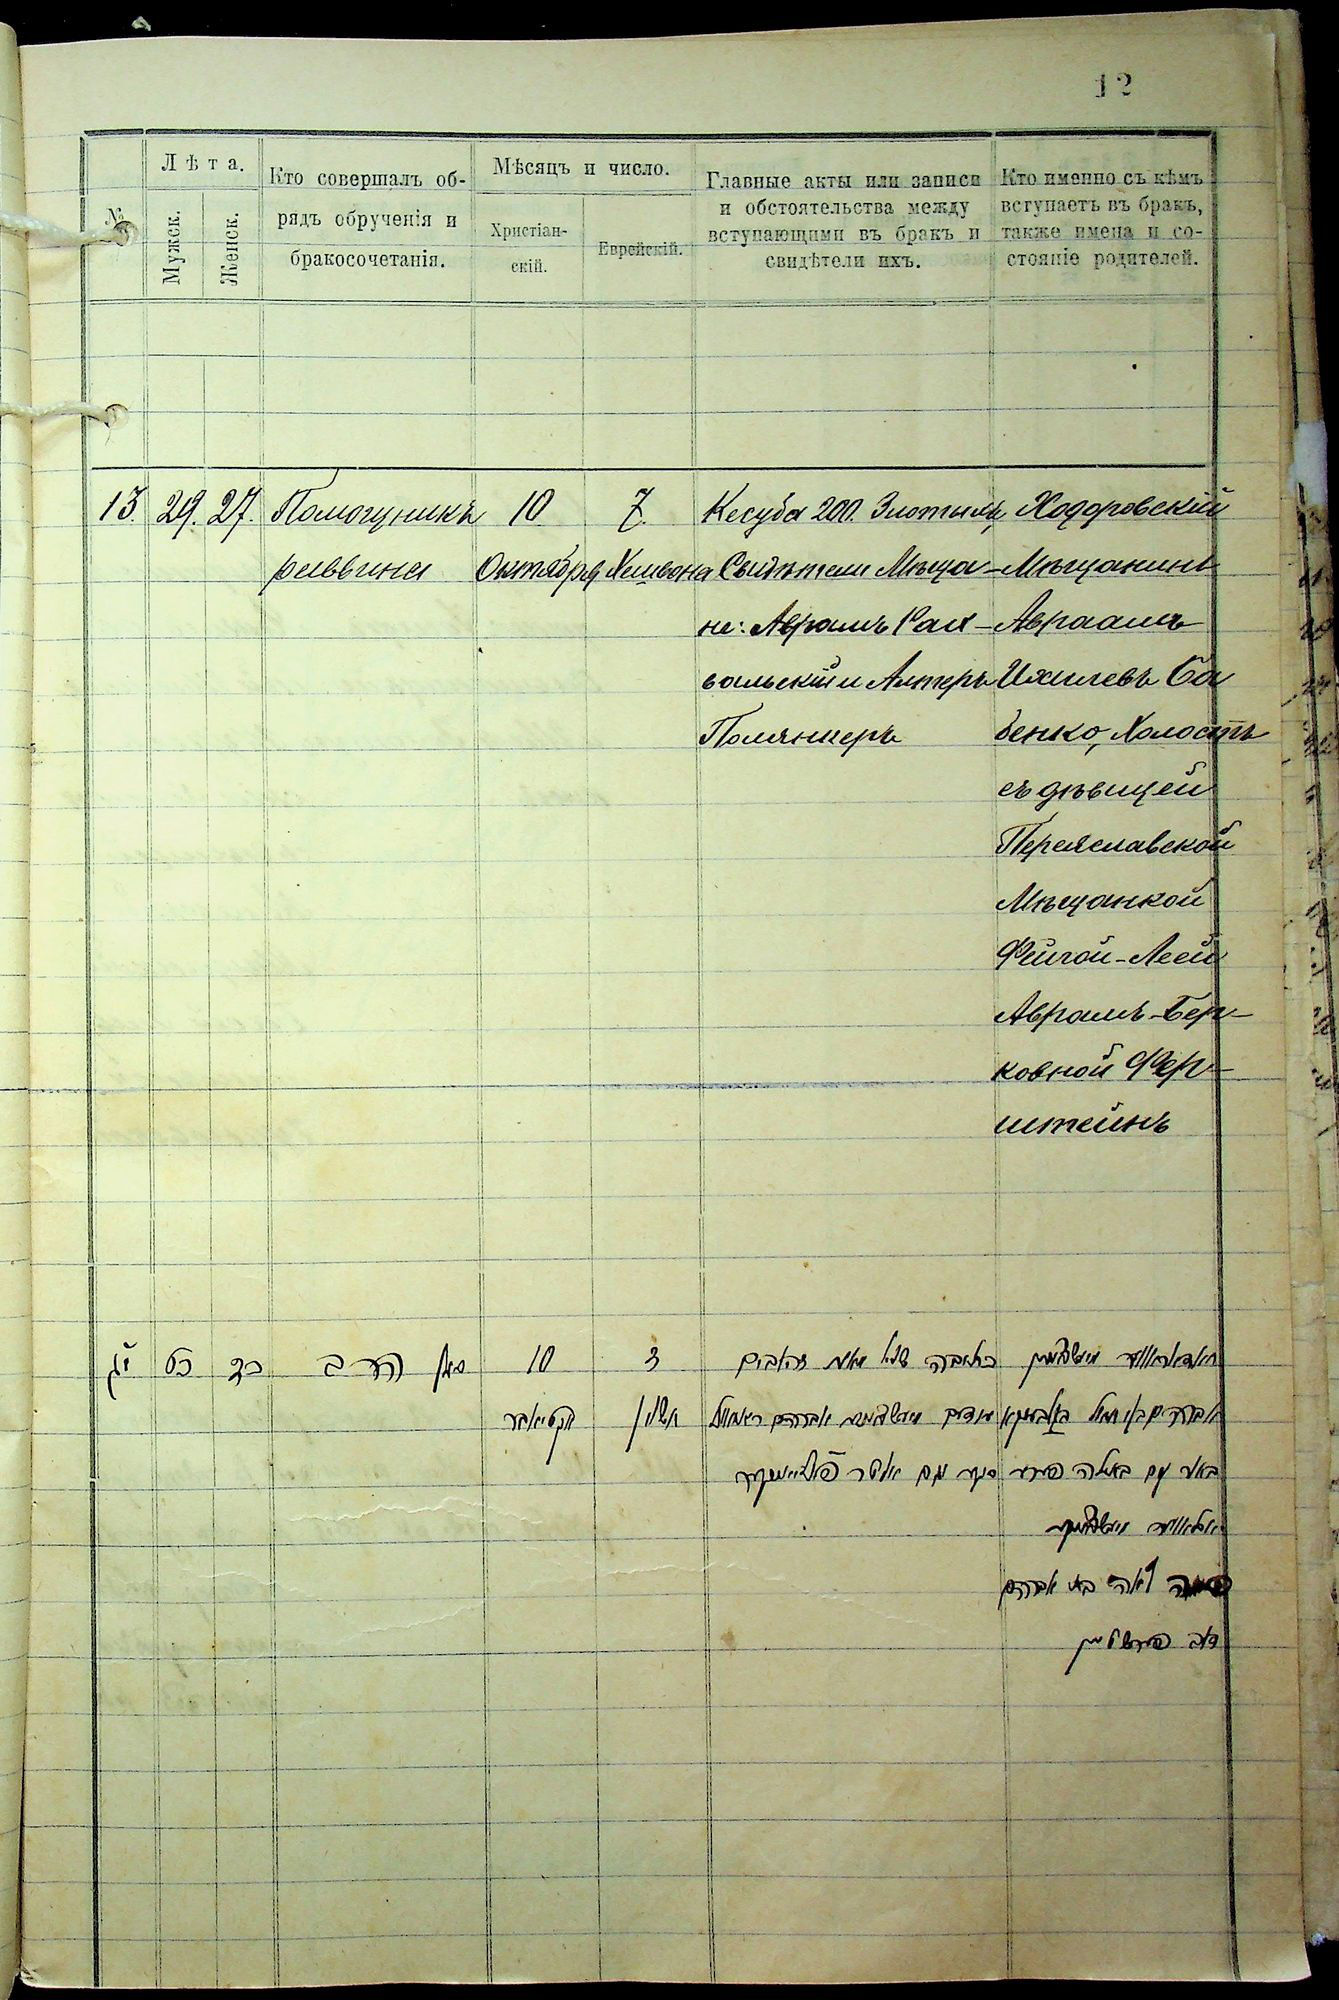 12
№
Лѣта.
Мужск.
Женск.
Кто совершалъ об-
рядъ обрученія и
бракосочетанія.
Мѣсяцъ и число.
Христіан-
скій.
Еврейскій.
Главные акты или записи
и обстоятельства между
вступающими въ бракъ и
свидѣтели ихъ.
Кто именно съ кѣмъ
вступаетъ въ бракъ,
также имена и со-
стояніе родителей.
13. 29. 27.
Помощникъ
раввина
10
Октября
7.
Хешвона
Кесуба 200. Злотыхъ,
Свидѣтели Мѣща-
не: Аврамъ Рах-
вальскій и Алтеръ
Полянкеръ
Ходоровскій
Мѣщанинъ
Авраамъ
Ихилевъ Ба
бенко, Холостъ
съ дѣвицей
Переяславской
Мѣщанкой
Фейгой-Леей
Аврамъ-Бер-
ковной Фер-
штейнъ
יג
כט
כז
סגן הרב
10
אקטיאבר
ז
חשון
כתובה שלו מאת זהובים
אברהם
אלטר
לאה בת אברהם
דוב פערשטיין